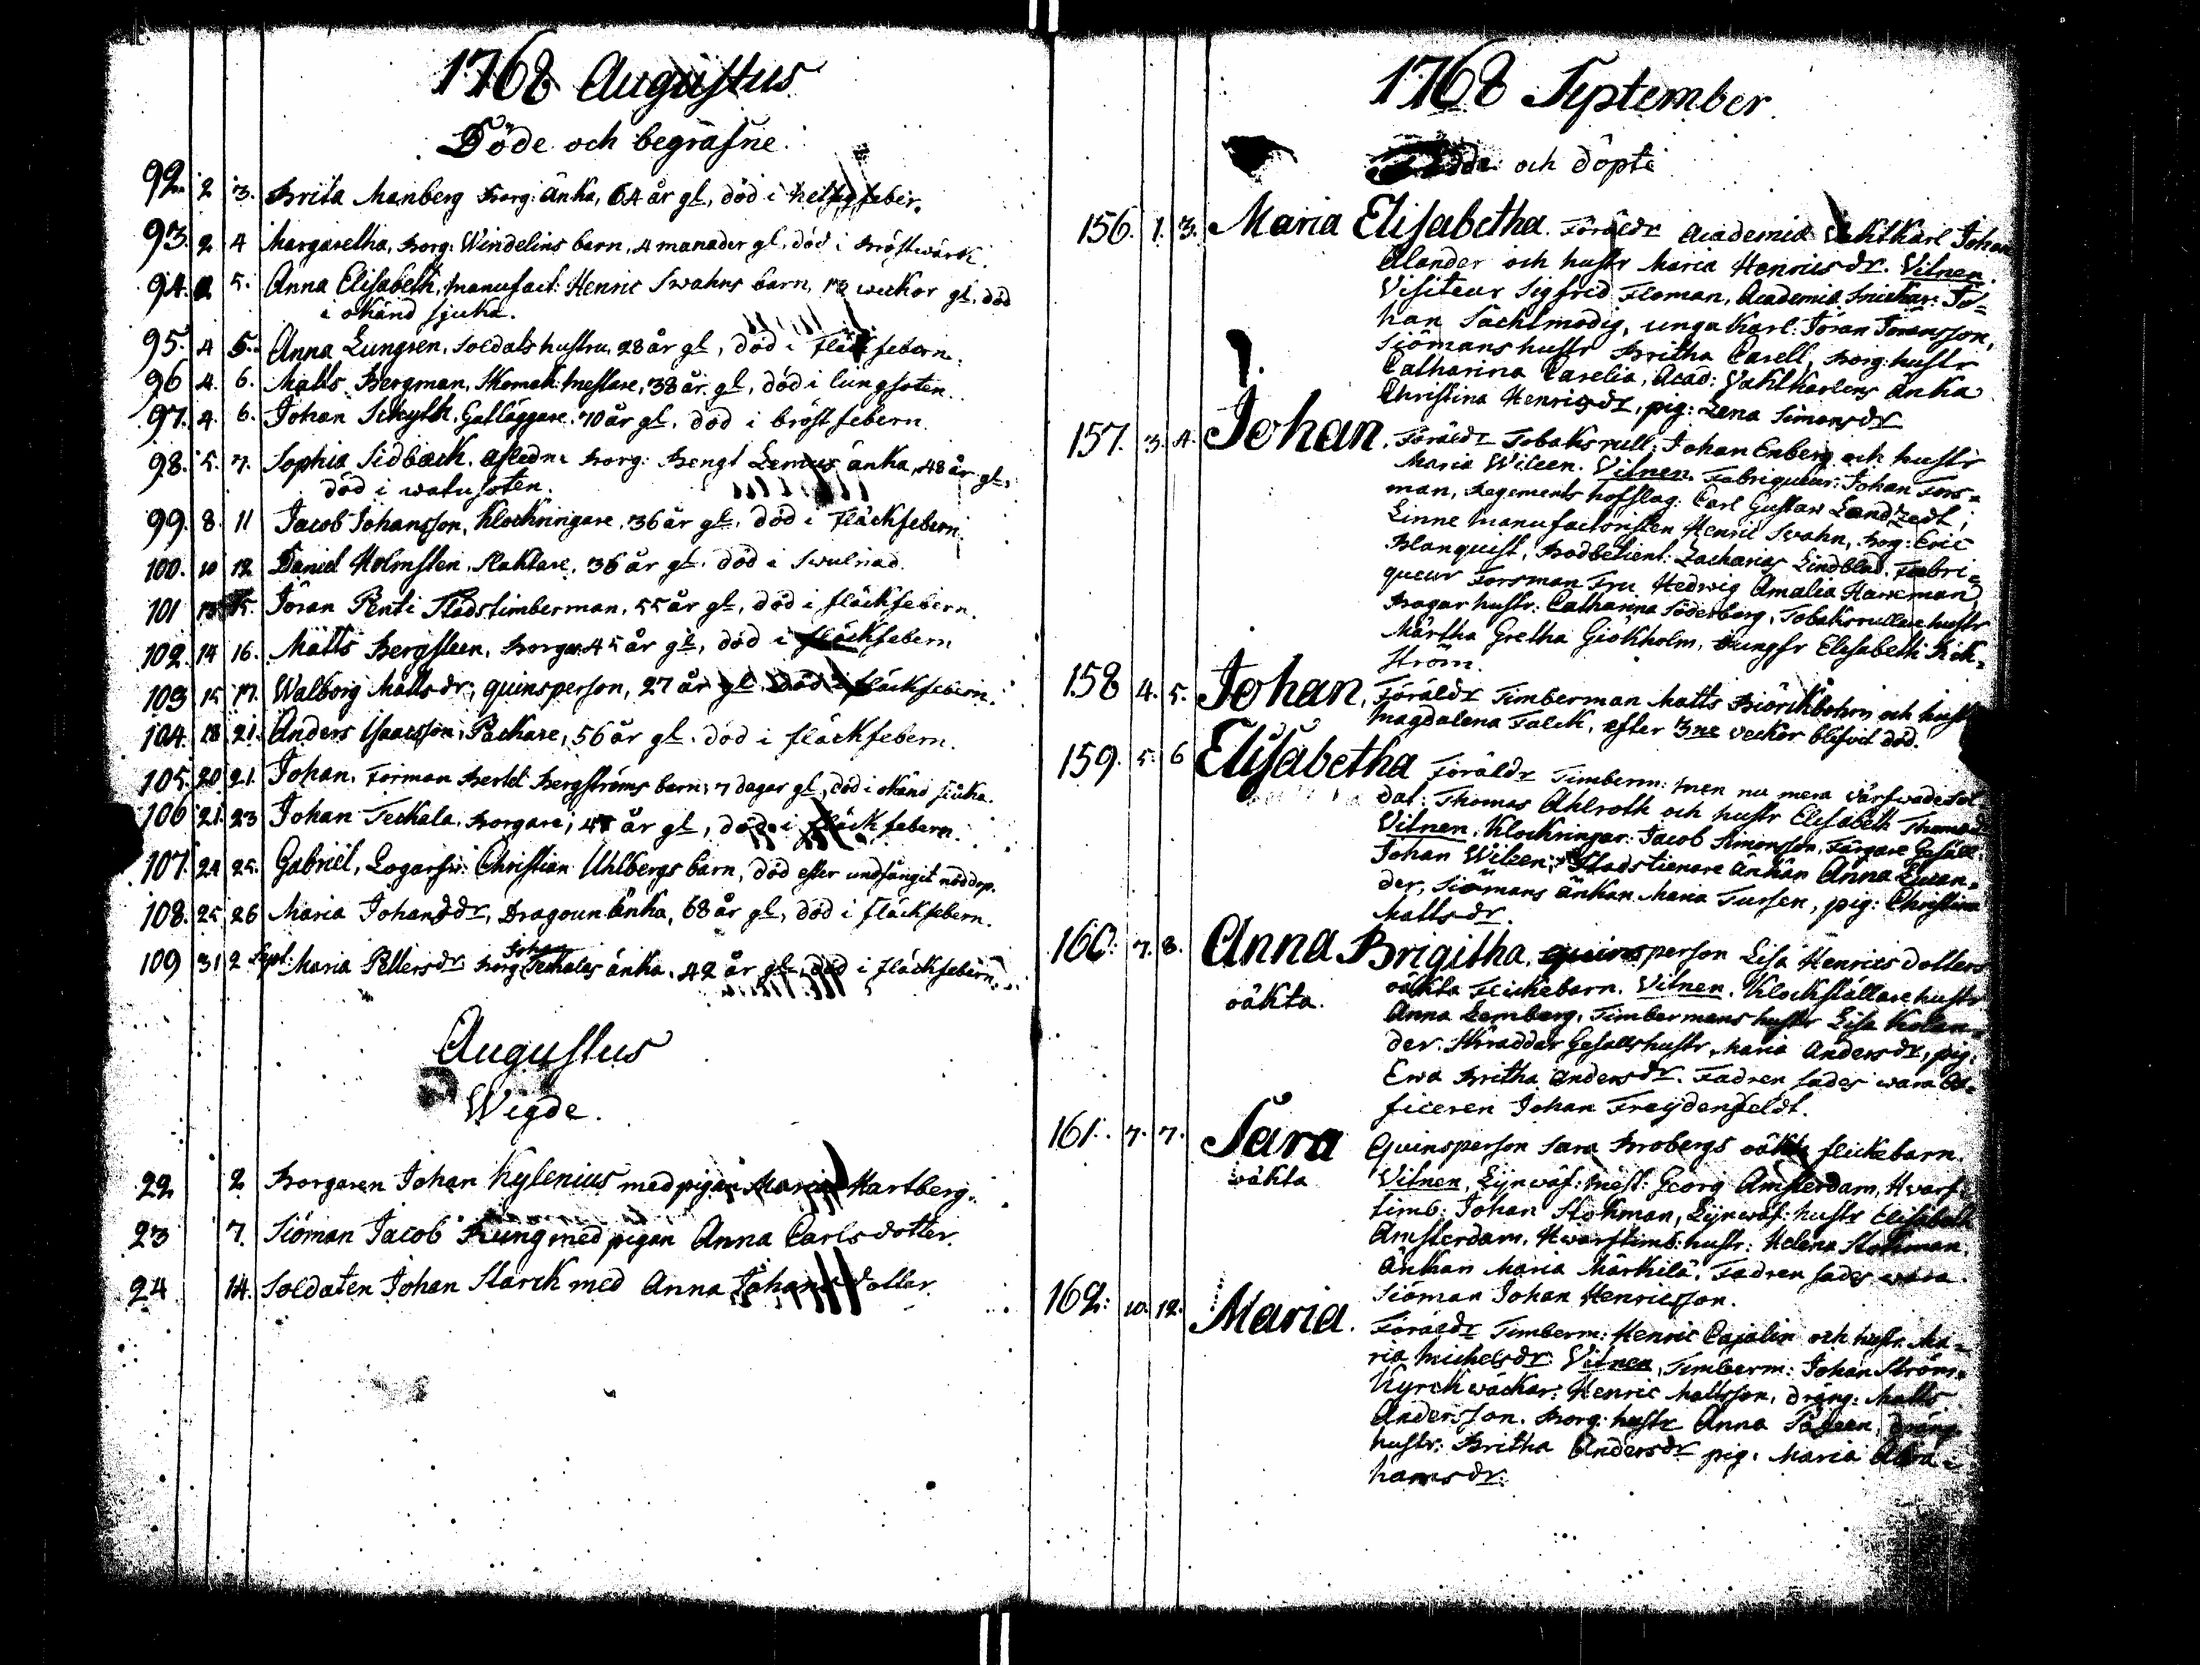 1768 Augustus
Döde och begrafne.
92. 2 3. Brita Manberg Borg: Änka, 64 år gl, död i hetsig feber.
93. 2 4 Margaretha, Borg: Windelins barn, 4 manader gl, död i Bröstwärk.
94. 2 5. Anna Elisabeth, manufact: Henric Swahns barn, 12 weckor gl. död
i okänd sjuka.
95. 4 5. Anna Lungren, Soldats hustru, 28 år gl, död i Fläckfebern.
96 4. 6. Matts Bergman, Skomak: mestare, 38 år gl, död i lungsoten.
97. 4. 6. Johan Schylth, Gatläggare. 70 år gl. död i bröstfebern.
98. 5. 7. Sophia Sidback. afledne Borg: Bengt änka, 48 år gl,
död i watusoten.
99. 8. 11 Jacob Johansson, Klockringare. 36 år gl. död i Fläckfebern.
100. 10 12 Daniel Holmsten, Slaktare, 36 år gl. död i Swulnad.
101 15. Jöran Penti Stadstimberman, 55 år gl, död i fläckfebern.
102. 14 16. Matts Bergsteen, Borgar 45 år gl, död i fläckfebern
103 15 17. Walborg Mattsdr, quinsperson, 27 år gl. död i fläckfebern.
104. 18 21. Anders Isaacsson, Packare, 56 år gl. död i fläckfebern.
105. 20 21. Johan. Forman Bertel Bergströms barn, 7 dagar gl, död i okänd siuka.
106 21. 23 Johan Teckala, Borgare, 47 år gl, död i fläckfebern.
107. 24 25. Gabriel, Logarfw: Christian Uhlbergs barn, död efter undfångit nöddop.
108. 25 26 Maria Johansdr, Dragoun Änka, 68 år gl, död i fläckfebern.
109 31 2 Sept: Maria Pettersdr Borg: Johan Teckalas änka, 42 år gl. död i fläckfebern.
Augustus
Wigde.
22 2 Borgaren Johan Kylenius med pigan Maria Hartberg.
23 7. Siöman Jacob Kung med pigan Anna Carlsdotter.
24 14. Soldaten Johan Starck med Anna Johansdotter.
1768 September.
Födde och döpte
156. 1. 3. Maria Elisabetha. Föräldr Academiæ Vaktkarl Johan
Alander och hustr Maria Henricsdr. Vitnen.
Visiteur Sigfrid Floman, Academiæ Snickar: Jo=
han Sachtmodig, unga Karl: Jöran Jönansson,
Siömans hustr Britha Carell, Borg: hustr
Catharina Carelia, Acad: Vaktkarlens Änka
Christina Henricsdr, pig: Lena Simonsdr
157. 3. 4. Johan. Föräldr Tobaksrull: Johan Enberg och hustr
Maria Wileen. Vitnen. Fabriqueur: Johan Fors=
man, Regements hofslag: Carl Gustav Landzedt,
Linne manufactoristen Henric Swahn, Borg: Eric
Blanquist, Bodbetient: Zacharias Lindblad. Fabri=
queur Forsman Fru Hedwig Amalia Haveman,
Bragar hustr: Catharina Söderborg, Tobaksrullare hustr
Märtha Gretha Giökholm, Jungfr Elisabeth Rick=
ström.
158 4. 5. Johan, Föräldr Timberman Matts Biörckbohm och hustr
Magdalena Falck, efter 3ne veckor blifvit död.
159. 5. 6 Elisabetha Föräldr Timberm: men nu mera
dat: Thomas Ahlroth och hustr Elisabeth Thomasdr
Vitnen. Klockringar: Jacob Simonsson, Färgare Gesäll:
Johan Wileen, Stadstienare Änkan Anna Evan=
der, Siömans änkan Maria Tursen, pig: Christina
Mattsdr.
160. 7. 8. Anna Brigitha, quinsperson Lisa Henricsdotters
oäkta oäkta Flickebarn. Vitnen. Klockställare hustr
Anna Lemberg, Timbermans hustr Lisa Kolan=
der. Skräddar Gesälls hustr, Maria Andersdr, pig:
Ewa Britha Andersdr. Fadren sades wara Of=
ficeren Johan Freydenfeldt.
161. 7. 7. Sara Quinsperson Sara Brobergs oäkta flickebarn.
oäkta Vitnen, Lijnwäf: mäst: Georg Amsterdam, Hvarfs
timb: Johan Stokman, Lijnwäf: hustr Elisabeth
Amsterdam, Hwarfstimb: hustr: Helena Stokman.
Änkan Maria Märkilä. Fadren sades wara
Siöman Johan Henricsson.
162. 10. 12. Maria. Föräldr Timberm: Henric Cajalin och hustr Ma=
ria Michelsdr. Vitnen, Timberm: Johan Ström.
Kyrckwäckar: Henric Mattsson, dräng: Matts
Andersson. Borg: hustr Anna dräng
hustr: Britha Andersdr pig: Maria Abra=
hamsdr.